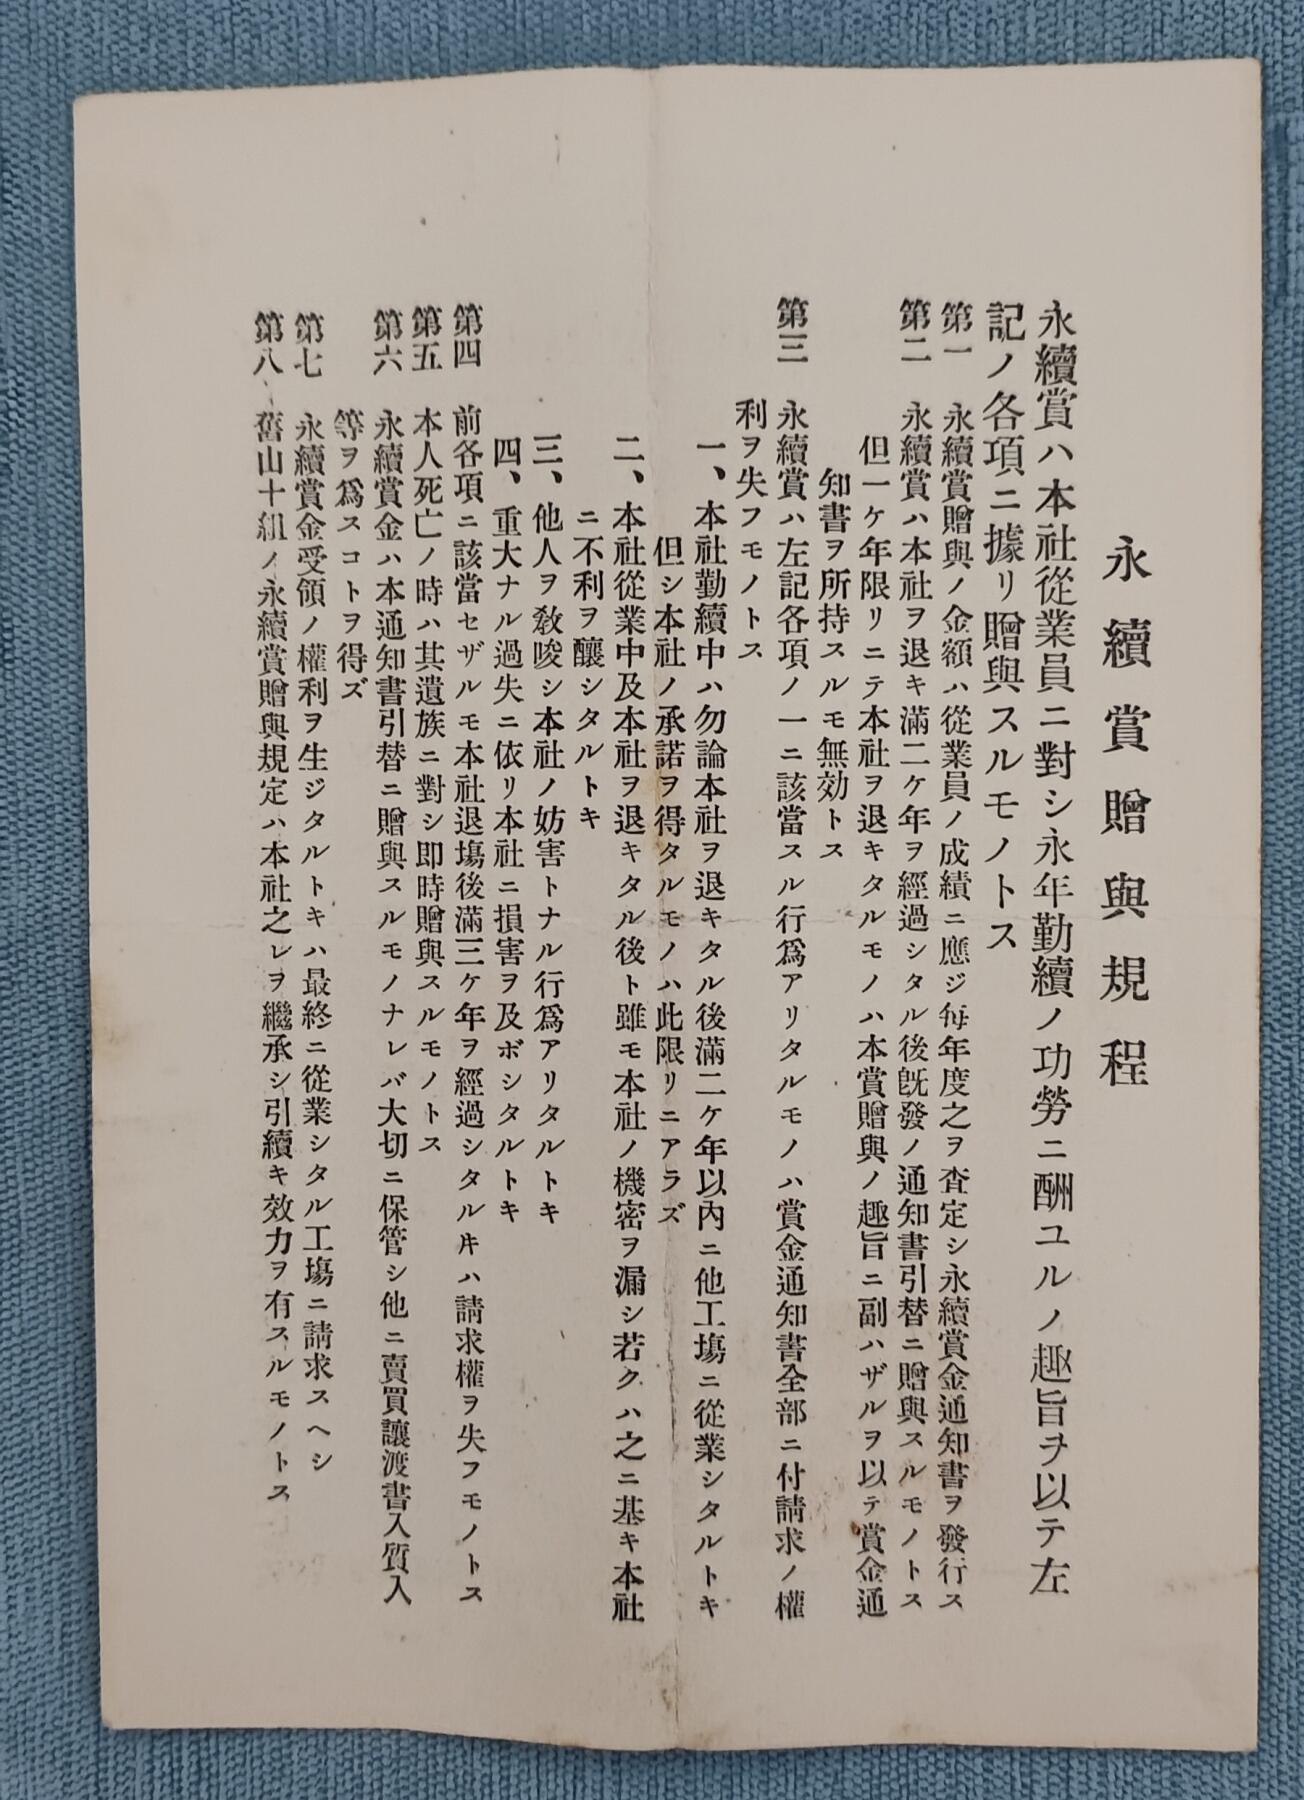 永續賞贈與規程
永續賞ハ本社從業員ニ對シ永年勤續ノ功勞ニ酬ユルノ趣旨ヲ以テ左
記ノ各項ニ據リ贈與スルモノトス
第一 永續賞贈與ノ金額ハ從業員ノ成績ニ應ジ每年度之ヲ査定シ永續賞金通知書ヲ發行ス
第二 永續賞ハ本社ヲ退キ滿二ケ年ヲ經過シタル後旣發ノ通知書引替ニ贈與スルモノトス
但一ケ年限リニテ本社ヲ退キタルモノハ本賞贈與ノ趣旨ニ副ハザルヲ以テ賞金通
知書ヲ所持スルモ無効トス
第三 永續賞ハ左記各項ノ一ニ該當スル行爲アリタルモノハ賞金通知書全部ニ付請求ノ權
利ヲ失フモノトス
一、本社勤續中ハ勿論本社ヲ退キタル後滿二ケ年以內ニ他工塲ニ從業シタルトキ
但シ本社ノ承諾ヲ得タルモノハ此限リニアラズ
二、本社從業中及本社ヲ退キタル後ト雖モ本社ノ機密ヲ漏シ若クハ之ニ基キ本社
ニ不利ヲ釀シタルトキ
三、他人ヲ敎唆シ本社ノ妨害トナル行爲アリタルトキ
四、重大ナル過失ニ依リ本社ニ損害ヲ及ボシタルトキ
第四 前各項ニ該當セザルモ本社退塲後滿三ケ年ヲ經過シタル𪜈ハ請求權ヲ失フモノトス
第五 本人死亡ノ時ハ其遺族ニ對シ即時贈與スルモノトス
第六 永續賞金ハ本通知書引替ニ贈與スルモノナレバ大切ニ保管シ他ニ賣買讓渡書入質入
等ヲ爲スコトヲ得ズ
第七 永續賞金受領ノ權利ヲ生ジタルトキハ最終ニ從業シタル工塲ニ請求スヘシ
第八 舊山十組ノ永續賞贈與規定ハ本社之レヲ繼承シ引續キ效力ヲ有スルモノトス